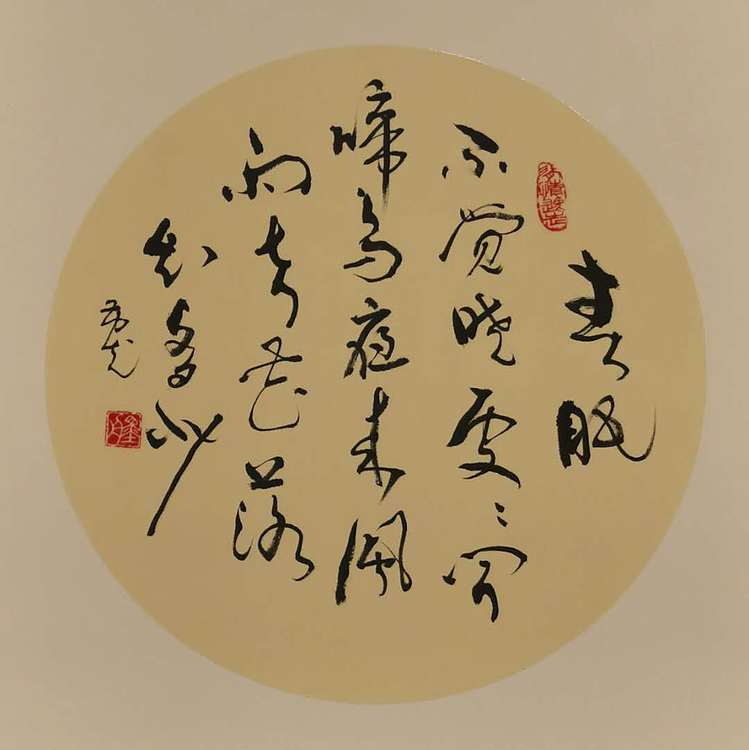 春眠
不觉晓處〻闻
啼鸟夜来風
雨声花落
知多少